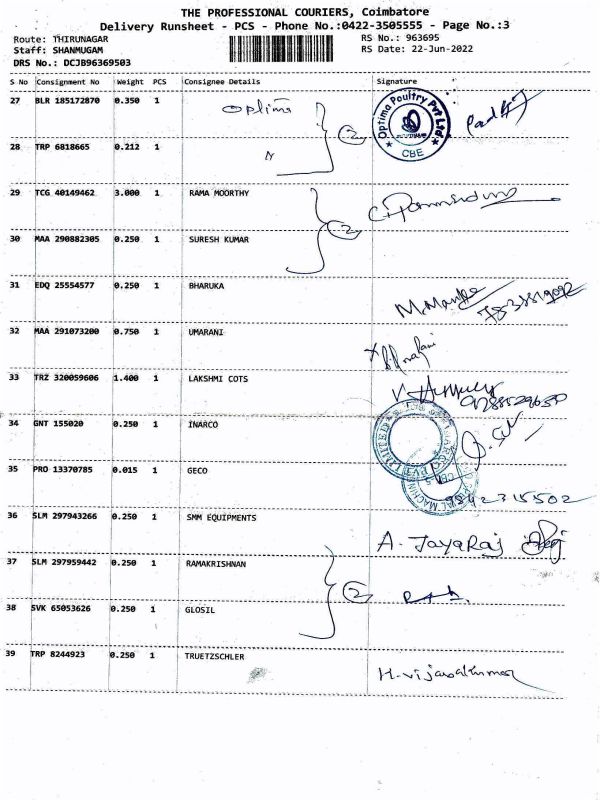 THE PROFESSIONAL COURIERS, Coimbatore
Delivery Runsheet - PCS - Phone No.:0422-3505555 - Page No.:3
Route: THIRUNAGAR RS No.: 963695
Staff: SHANMUGAM RS Date: 22-Jun-2022
DRS No.: DCJB96369503
S No Consignment No Weight PCS Consignee Details Signature
27 BLR 185172870 0.350 1 Optima
Optima Poultry Pvt Ltd
CBE
2
28 TRP 6818665 0.212 1
29 TCG 40149462 3.000 1 RAMA MOORTHY
2
30 MAA 290882305 0.250 1 SURESH KUMAR
31 EDQ 25554577 0.250 1 BHARUKA
32 MAA 291073200 0.750 1 UMARANI
33 TRZ 320059606 1.400 1 LAKSHMI COTS
34 GNT 155020 0.250 1 INARCO
35 PRO 13370785 0.015 1 GECO
9842315502
36 SLM 297943266 0.250 1 SMM EQUIPMENTS A. JAYARAJ
37 SLM 297959442 0.250 1 RAMAKRISHNAN
2
38 SVK 65053626 0.250 1 GLOSIL
39 TRP 8244923 0.250 1 TRUETZSCHLER H.vijayakumar